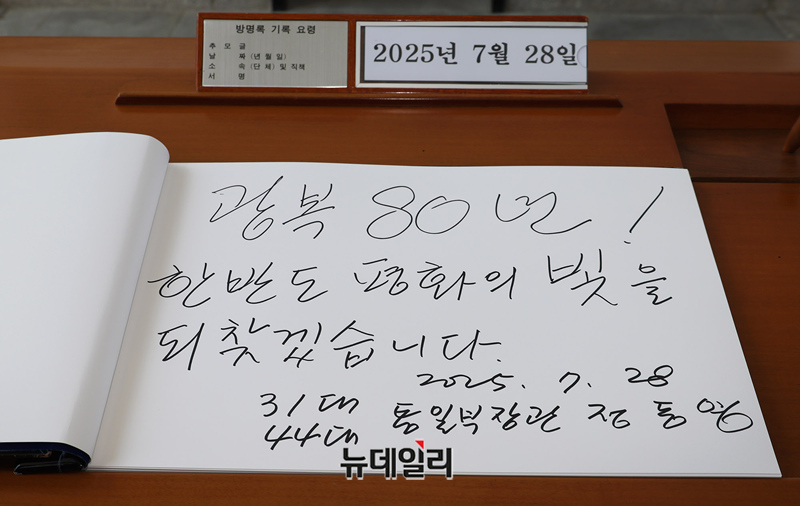 방명록 기록 요령
추 모 글
날 짜 (년 월 일)
소 속 (단 체) 및 직책
서 명
2025년 7월 28일
광복 80년!
한반도 평화의 빛을
되찾겠습니다.
2025. 7. 28
31대
44대 통일부장관 정동영
뉴데일리